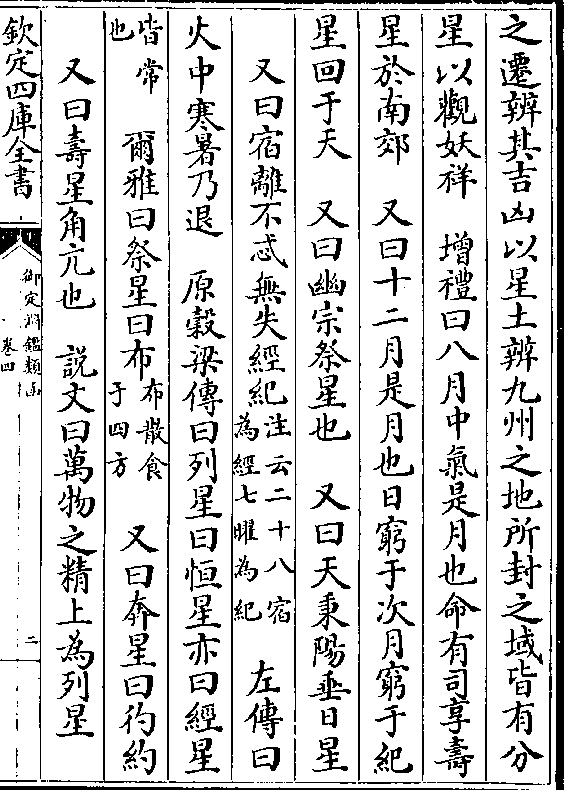 之遷辨其吉凶以星土辨九州之地所封之域皆有分
星以觀妖祥　增禮曰八月中氣是月也命有司享壽
星於南郊　又曰十二月是月也日窮于次月窮于紀
星回于天　又曰幽宗祭星也　又曰天秉陽垂日星
又曰宿離不忒無失經紀注云二十八宿為經七曜為紀　左傳曰
火中寒暑乃退　原穀梁傳曰列星曰恒星亦曰經星
皆常也　爾雅曰祭星曰布布散食于四方　又曰奔星曰彴約
又曰壽星角亢也　説文曰萬物之精上為列星
欽定四庫全書
御定淵鑑類函
卷四
二